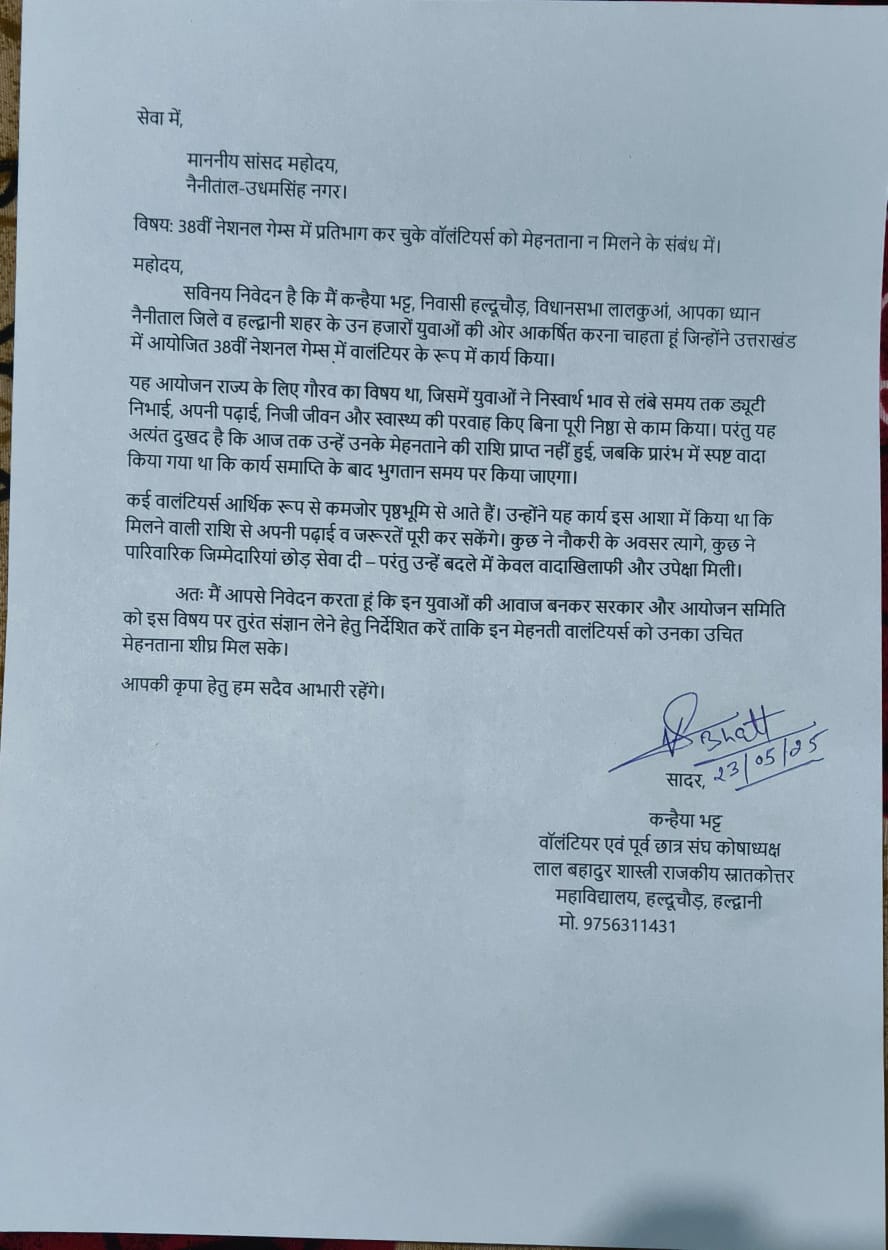 सेवा में,
माननीय सांसद महोदय,
नैनीताल-उधमसिंह नगर।
विषय: 38वीं नेशनल गेम्स में प्रतिभाग कर चुके वॉलंटियर्स को मेहनताना न मिलने के संबंध में।
महोदय,
सविनय निवेदन है कि मैं कन्हैया भट्ट, निवासी हल्दूचौड़, विधानसभा लालकुआं, आपका ध्यान
नैनीताल जिले व हल्द्वानी शहर के उन हजारों युवाओं की ओर आकर्षित करना चाहता हूं जिन्होंने उत्तराखंड
में आयोजित 38वीं नेशनल गेम्स में वालंटियर के रूप में कार्य किया।
यह आयोजन राज्य के लिए गौरव का विषय था, जिसमें युवाओं ने निस्वार्थ भाव से लंबे समय तक ड्यूटी
निभाई, अपनी पढ़ाई, निजी जीवन और स्वास्थ्य की परवाह किए बिना पूरी निष्ठा से काम किया। परंतु यह
अत्यंत दुखद है कि आज तक उन्हें उनके मेहनताने की राशि प्राप्त नहीं हुई, जबकि प्रारंभ में स्पष्ट वादा
किया गया था कि कार्य समाप्ति के बाद भुगतान समय पर किया जाएगा।
कई वालंटियर्स आर्थिक रूप से कमजोर पृष्ठभूमि से आते हैं। उन्होंने यह कार्य इस आशा में किया था कि
मिलने वाली राशि से अपनी पढ़ाई व जरूरतें पूरी कर सकेंगे। कुछ ने नौकरी के अवसर त्यागे, कुछ ने
पारिवारिक जिम्मेदारियां छोड़ सेवा दी – परंतु उन्हें बदले में केवल वादाखिलाफी और उपेक्षा मिली।
अतः मैं आपसे निवेदन करता हूं कि इन युवाओं की आवाज बनकर सरकार और आयोजन समिति
को इस विषय पर तुरंत संज्ञान लेने हेतु निर्देशित करें ताकि इन मेहनती वालंटियर्स को उनका उचित
मेहनताना शीघ्र मिल सके।
आपकी कृपा हेतु हम सदैव आभारी रहेंगे।
Bhatt
सादर, 23/05/25
कन्हैया भट्ट
वॉलंटियर एवं पूर्व छात्र संघ कोषाध्यक्ष
लाल बहादुर शास्त्री राजकीय स्नातकोत्तर
महाविद्यालय, हल्दूचौड़, हल्द्वानी
मो. 9756311431